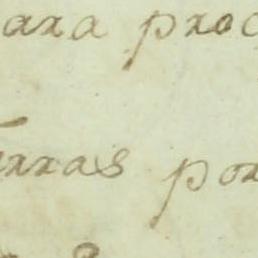 ara proc
rras por